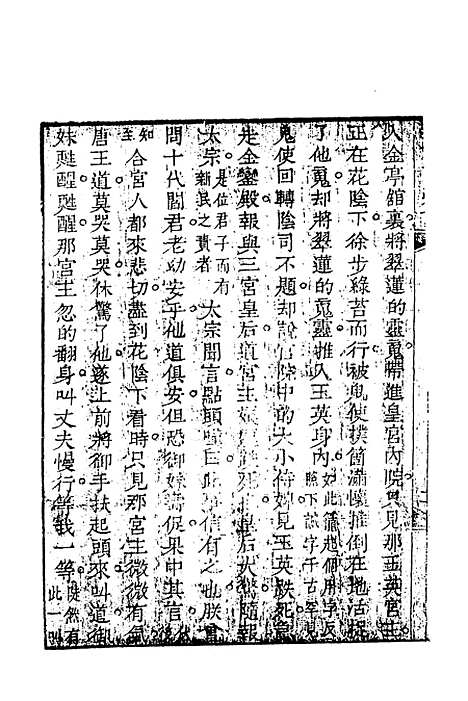 入金亭館裏將翠蓮的靈魂帶進皇宮內院只見那玉英宮主
正在花陰下徐步綠苔而行被鬼使撲箇滿懷推倒在地活捉
了他魂却將翠蓮的魂靈推入玉英身內
鬼使回轉陰司不題却說宮院中的大小侍婢見玉英跌死急
走金鑾殿報與三宮皇后道宮主娘娘跌死也皇后大驚隨報
太宗是位君子而有太宗聞言點頭嘆曰此事信有之也朕曾
問十代閻君老幼安乎他道俱安但恐御妹壽促果中其言
合宮人都來悲切盡到花陰下看時只見那宮主微微有氣
唐王道莫哭莫哭休驚了他遂上前將御手扶起頭來叫道御
妹甦醒甦醒那宮主忽的翻身叫丈夫慢行等我一等